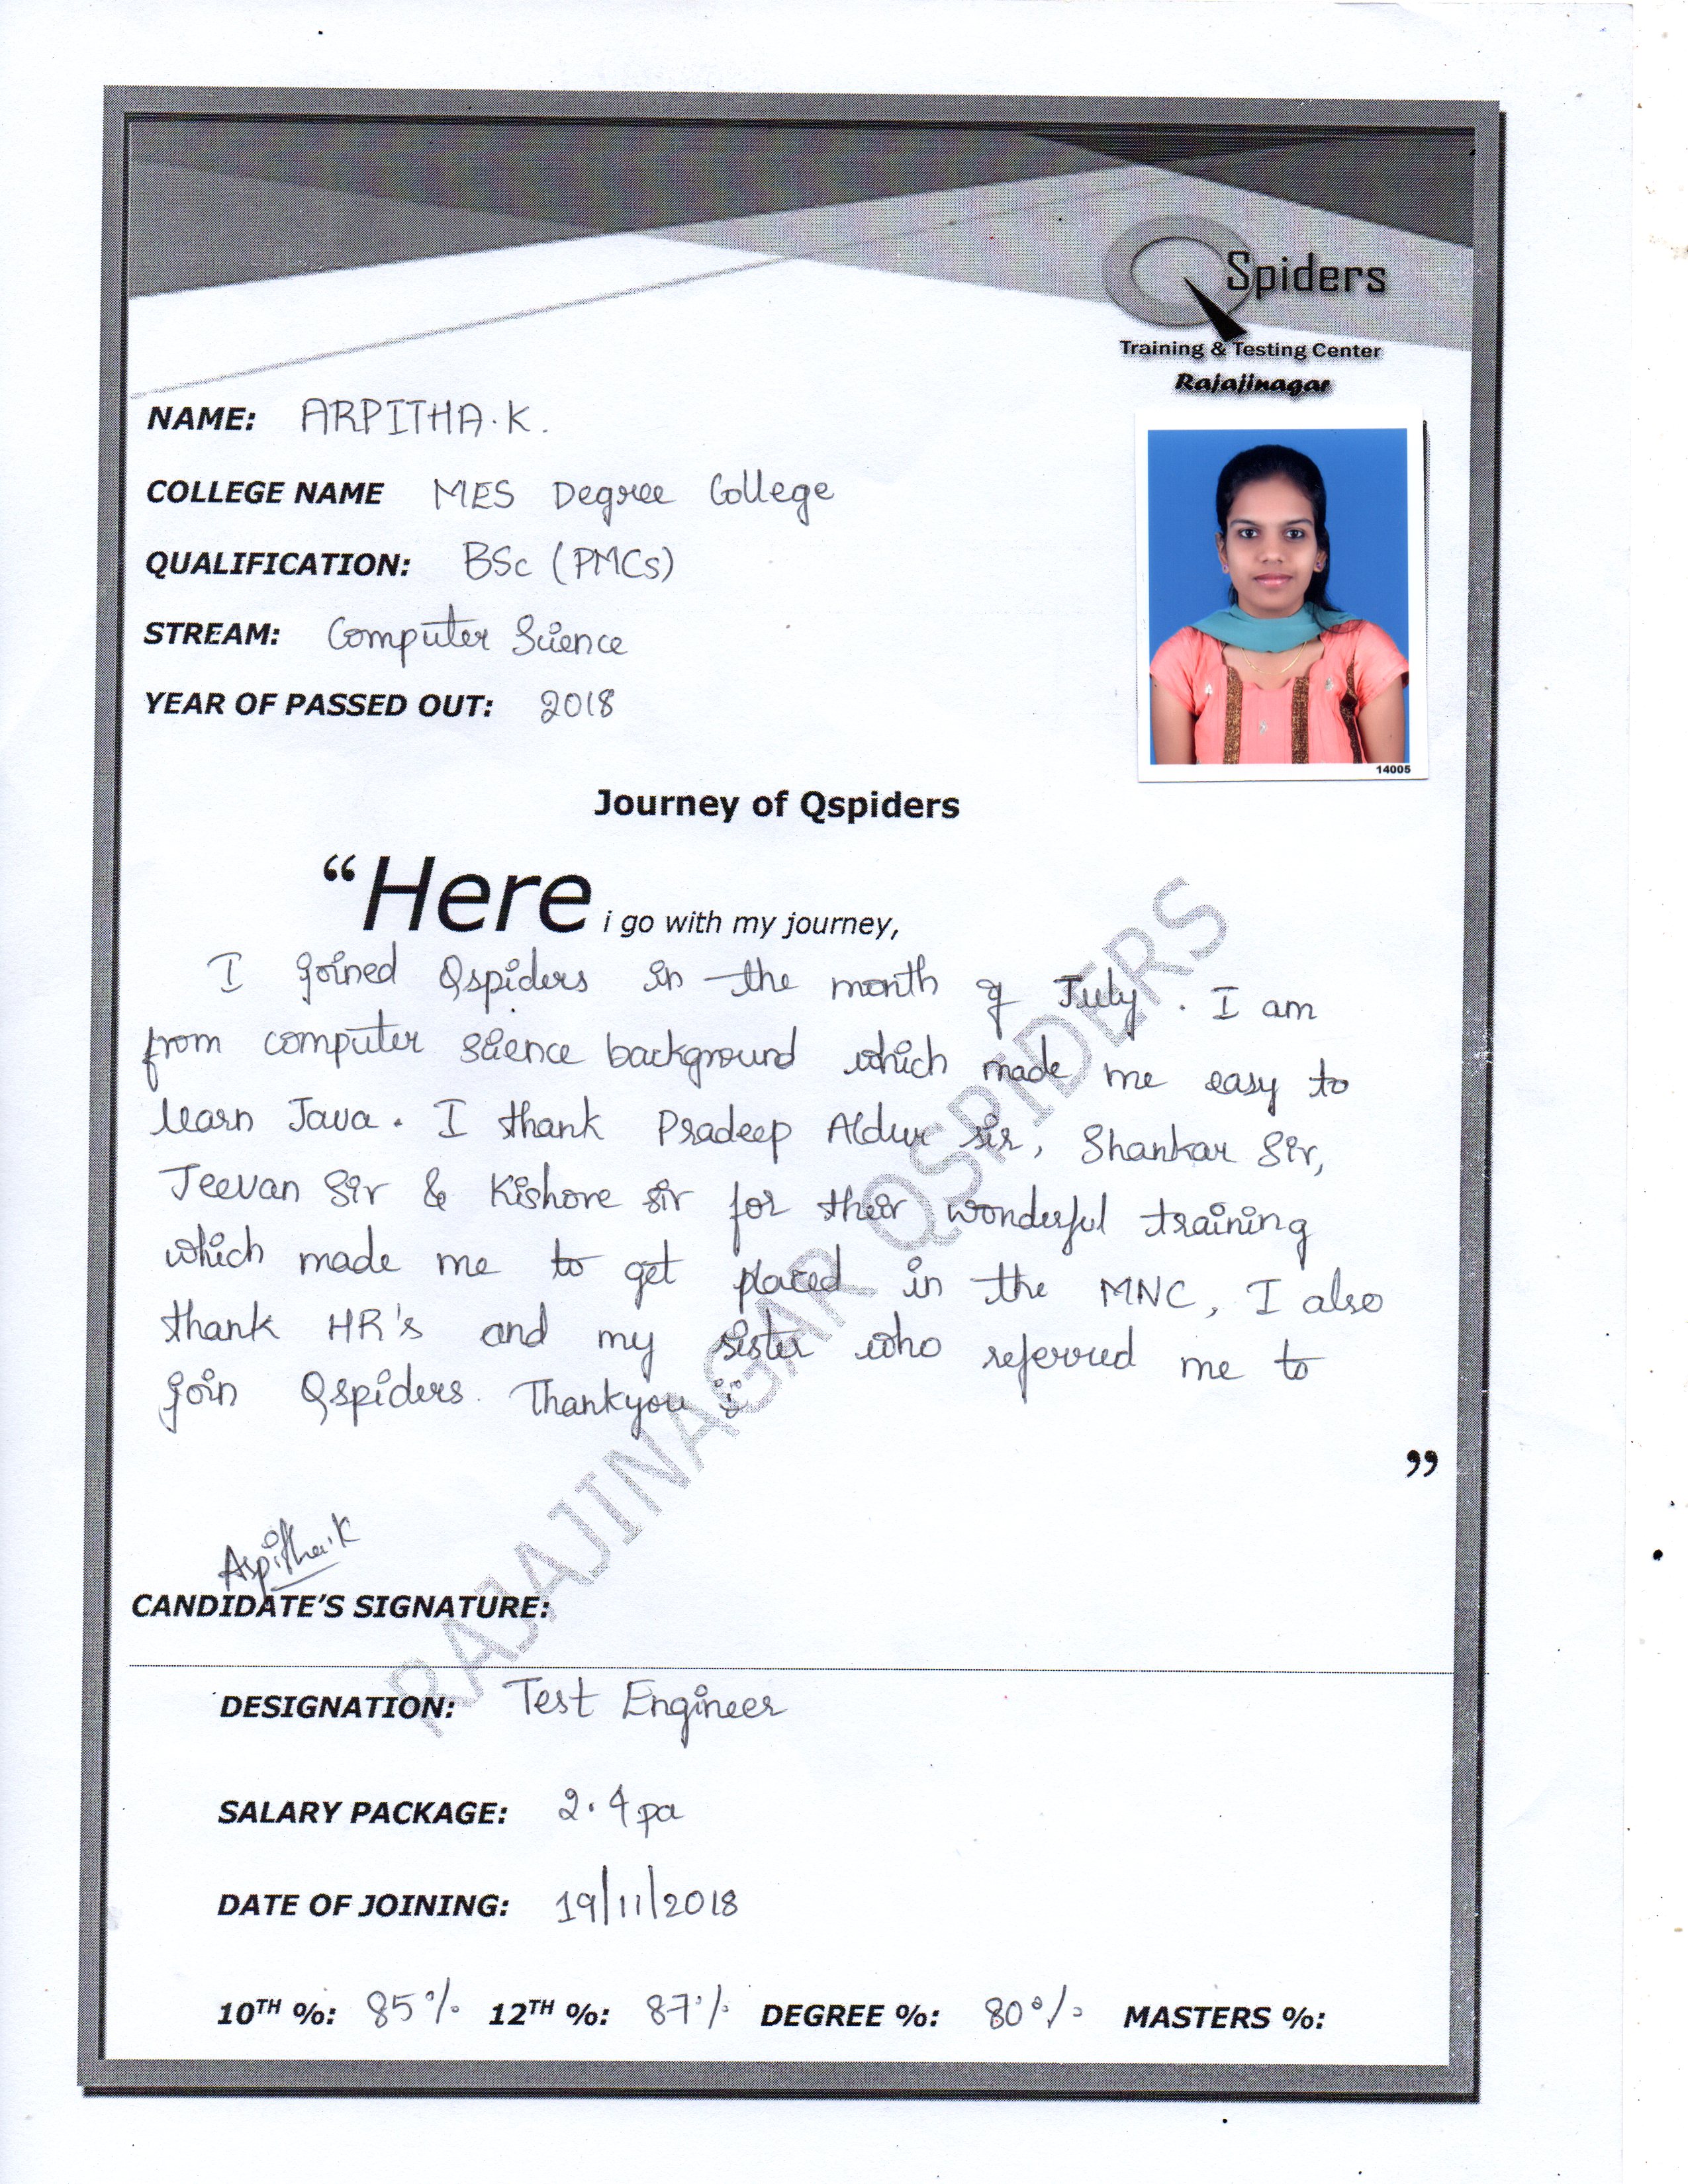 Spiders
Training & Testing Center
Rajajinagar
NAME: ARPITHA.K.
COLLEGE NAME MES Degree College
QUALIFICATION: BSc (PMCs)
STREAM: Computer Science
YEAR OF PASSED OUT: 2018
14005
Journey of Qspiders
“Here i go with my journey,
I joined Qspiders in the month of July. I am
from computer science background which made me easy to
learn Java. I thank Pradeep sir, Shankar Sir,
Jeevan Sir & Kishore sir for their wonderful training
which made me to get placed in the MNC, I also
thank HR's and my sister who referred me to
join Qspiders. Thankyou
”
Arpitha.K
CANDIDATE’S SIGNATURE:
RAJAJINAGAR QSPIDERS
DESIGNATION: Test Engineer
SALARY PACKAGE: 2.4 pa
DATE OF JOINING: 19/11/2018
10TH %: 85% 12TH %: 87% DEGREE %: 80% MASTERS %: